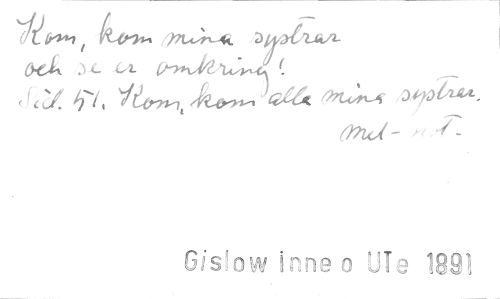 Kom, kom mina systrar
och se er omkring!
Sid. 51. Kom, kom alla mina systrar.
Mel-not.
Gislow Inne o UTe 1891